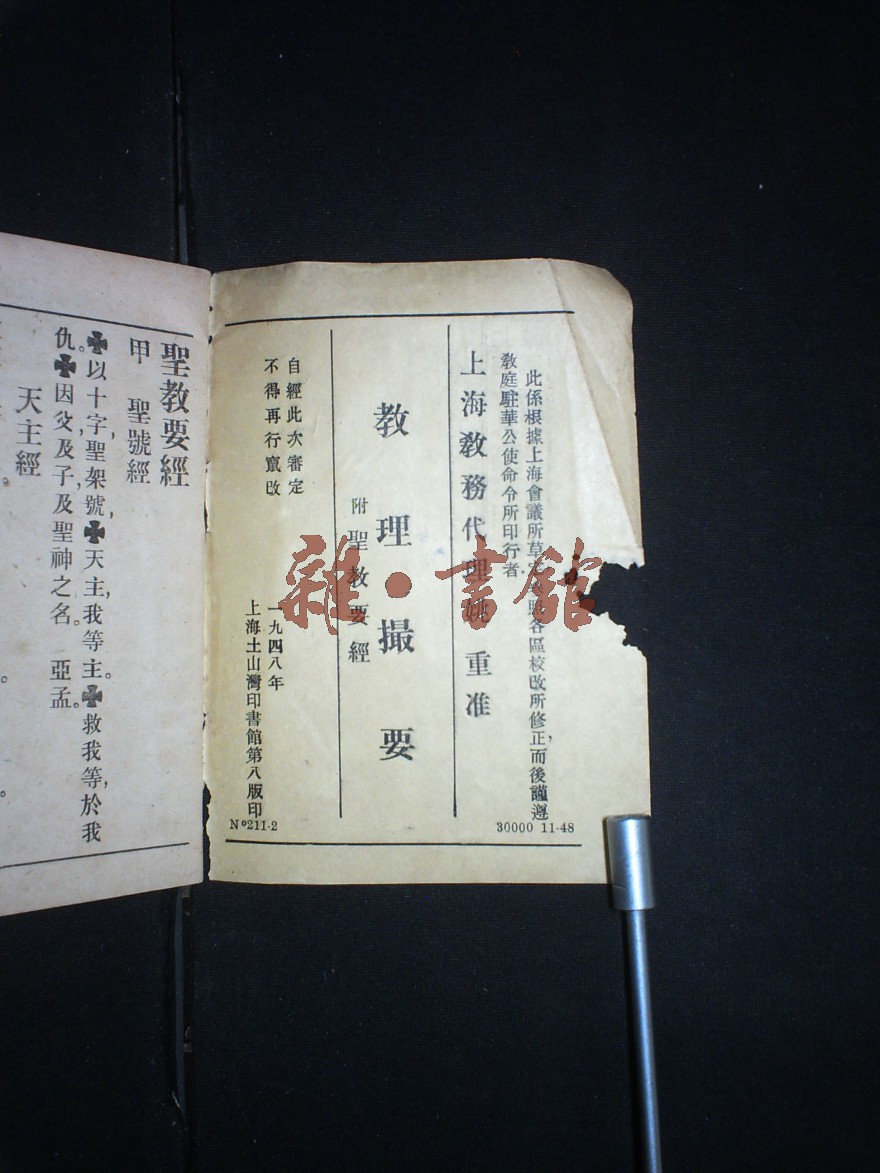 此係根據上海會議所草定各區校改所修正,而後謹遵
教庭駐華公使命令所印行者
上海教務代理姚 重准
教理撮要
附聖教要經
自經此次審定
不得再行竄改
一九四八年
上海土山灣印書館第八版印
30000 11-48
Nº211-2
聖教要經
甲 聖號經
✠以十字聖架號,✠天主,我等主。✠救我等,於我
仇。✠因父及子,及聖神之名。亞孟。
天主經
雜·書館